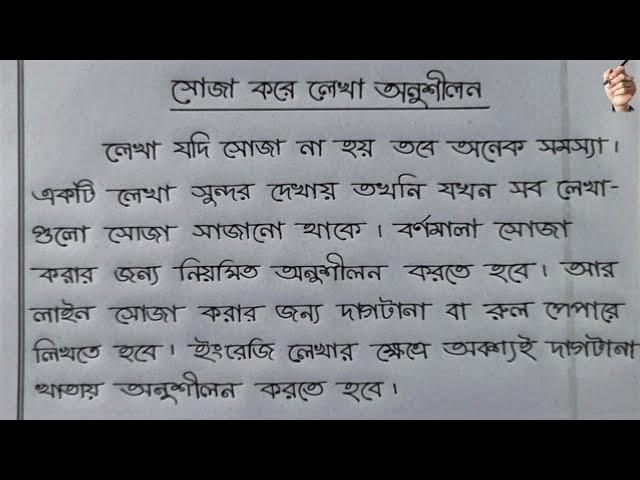 সোজা করে লেখা অনুশীলন
লেখা যদি সোজা না হয় তবে অনেক সমস্যা।
একটি লেখা সুন্দর দেখায় তখনি যখন সব লেখা-
গুলো সোজা সাজানো থাকে। বর্ণমালা সোজা
করার জন্য নিয়মিত অনুশীলন করতে হবে। আর
লাইন সোজা করার জন্য দাগটানা বা রুল পেপারে
লিখতে হবে। ইংরেজি লেখার ক্ষেত্রে অবশ্যই দাগটানা
খাতায় অনুশীলন করতে হবে।